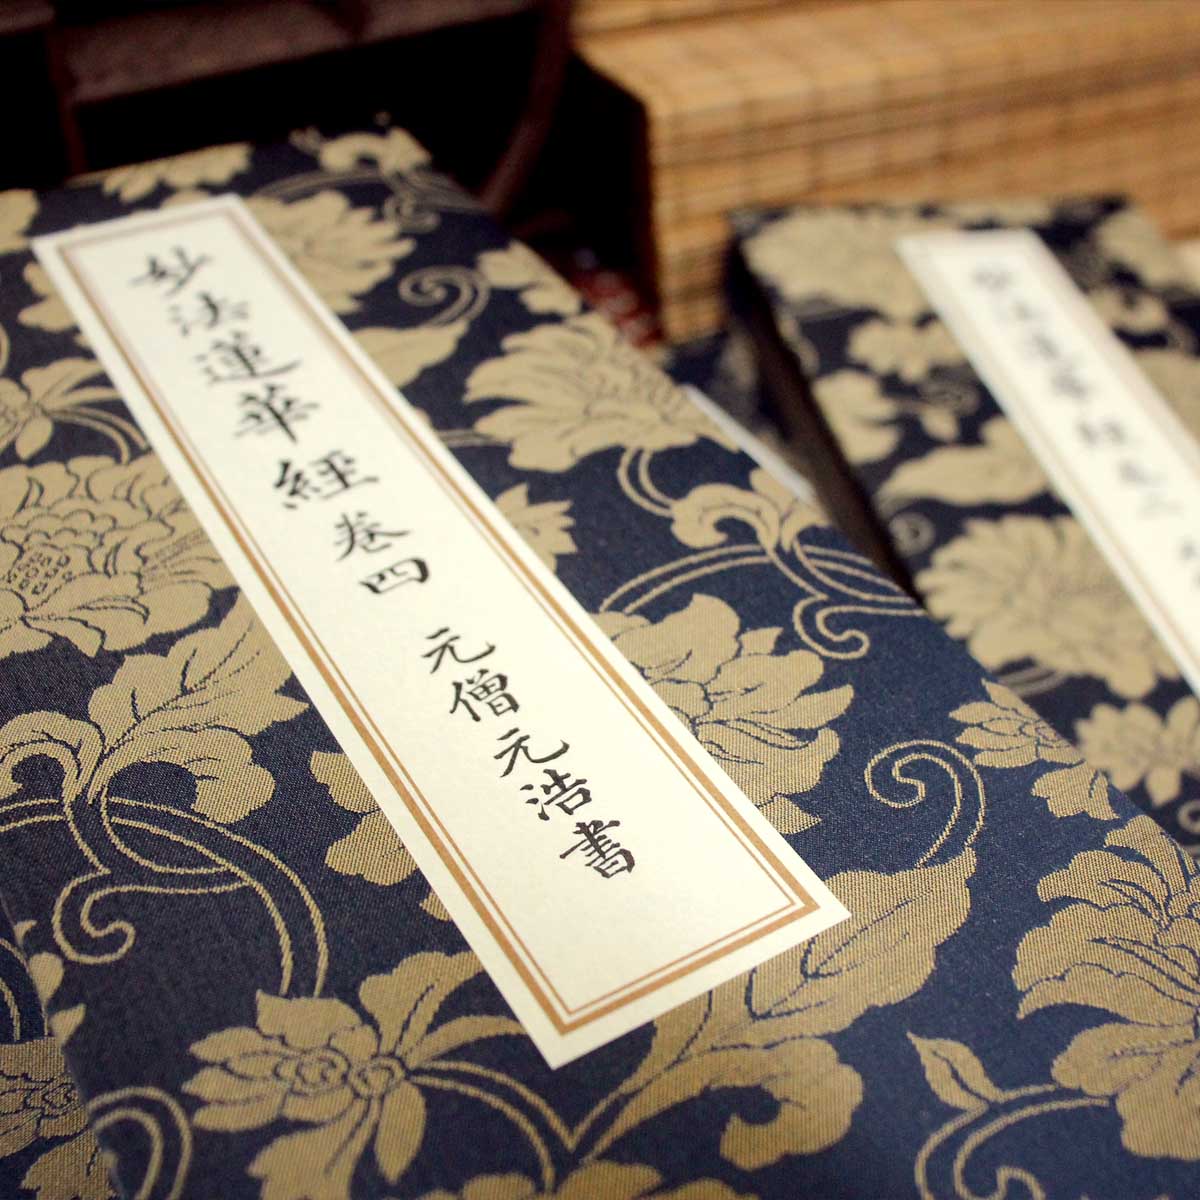 妙法蓮華經卷四 元僧元浩書
妙法蓮華經卷二